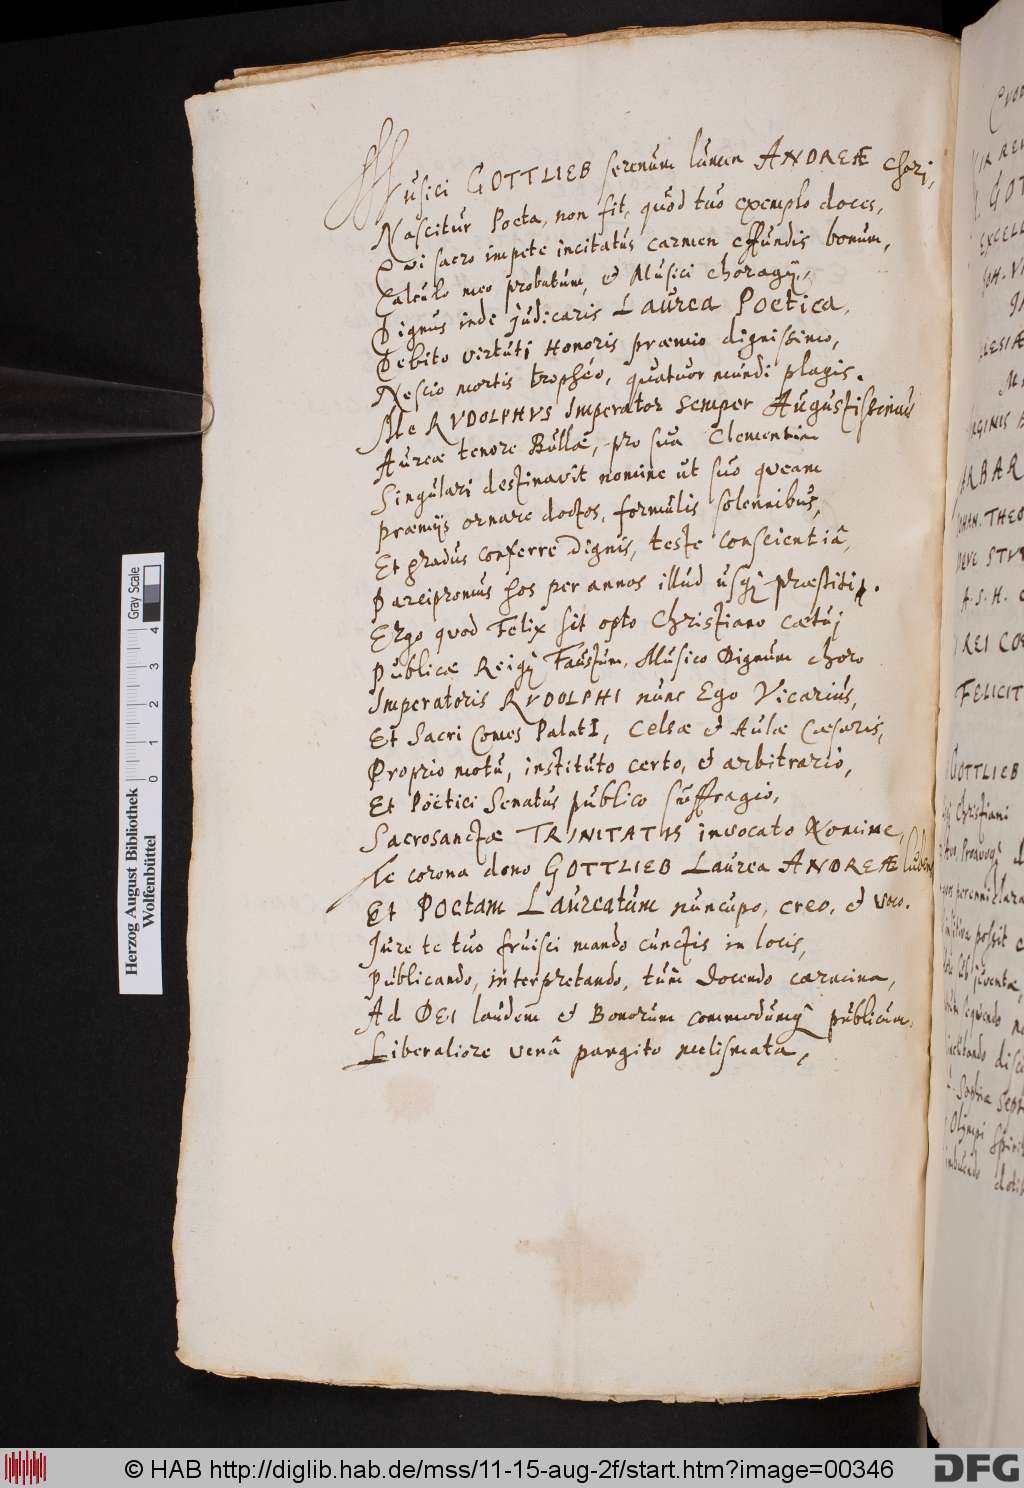 Musici GOTTLIEB serenum lumen ANDREÆ chori,
Nascitur Poeta, non fit, quod tuo exemplo doces,
Qui sacro impete incitatus carmen effundis bonum,
Calculo meo probatum, & Musici choragij,
Dignus inde judicaris Laurea Poetica,
Debito virtuti Honoris præmio dignissimo,
Nescio mortis trophéo, quatuor mundi plagis.
Me RVDOLPHVS Imperator semper Augustissimus
Aureæ tenore Bullæ, pro sua Clementia
Singulari destinavit nomine ut suo queam
præmijs ornare doctos, formulis solennibus,
Et gradus conferre Dignis, teste conscientiâ,
Parcipromus hos per annos illud usq; præstiti.
Ergo quod Felix sit opto Christiano cœtuj
Publicæ Reiq; Faustum, Musico Dignum choro
Imperatoris RVDOLPHI nunc Ego Vicarius,
Et Sacri Comes PalatI, Celsæ & Aulæ Cæsaris,
Proprio motu, instituto certo, & arbitrario,
Et Pöetici Senatus publico suffragio,
Sacrosanctæ TRINITATIS invocato Nomine,
Te corona dono GOTTLIEB Laurea ANDREÆ
Et Poetam Laureatum nuncupo, creo, & voco.
Jure te tuo fruisci mando cunctis in locis,
Publicando, interpretando, tum docendo carmina,
Ad DEI laudem & Bonorum commodumq; publicum,
Liberaliore venâ pangito melismata,
GOTTLIEB
Christiani
FELICIT
Herzog August Bibliothek
Wolfenbüttel
0 1 2 3 4
Gray Scale
© HAB http://diglib.hab.de/mss/11-15-aug-2f/start.htm?image=00346
DFG